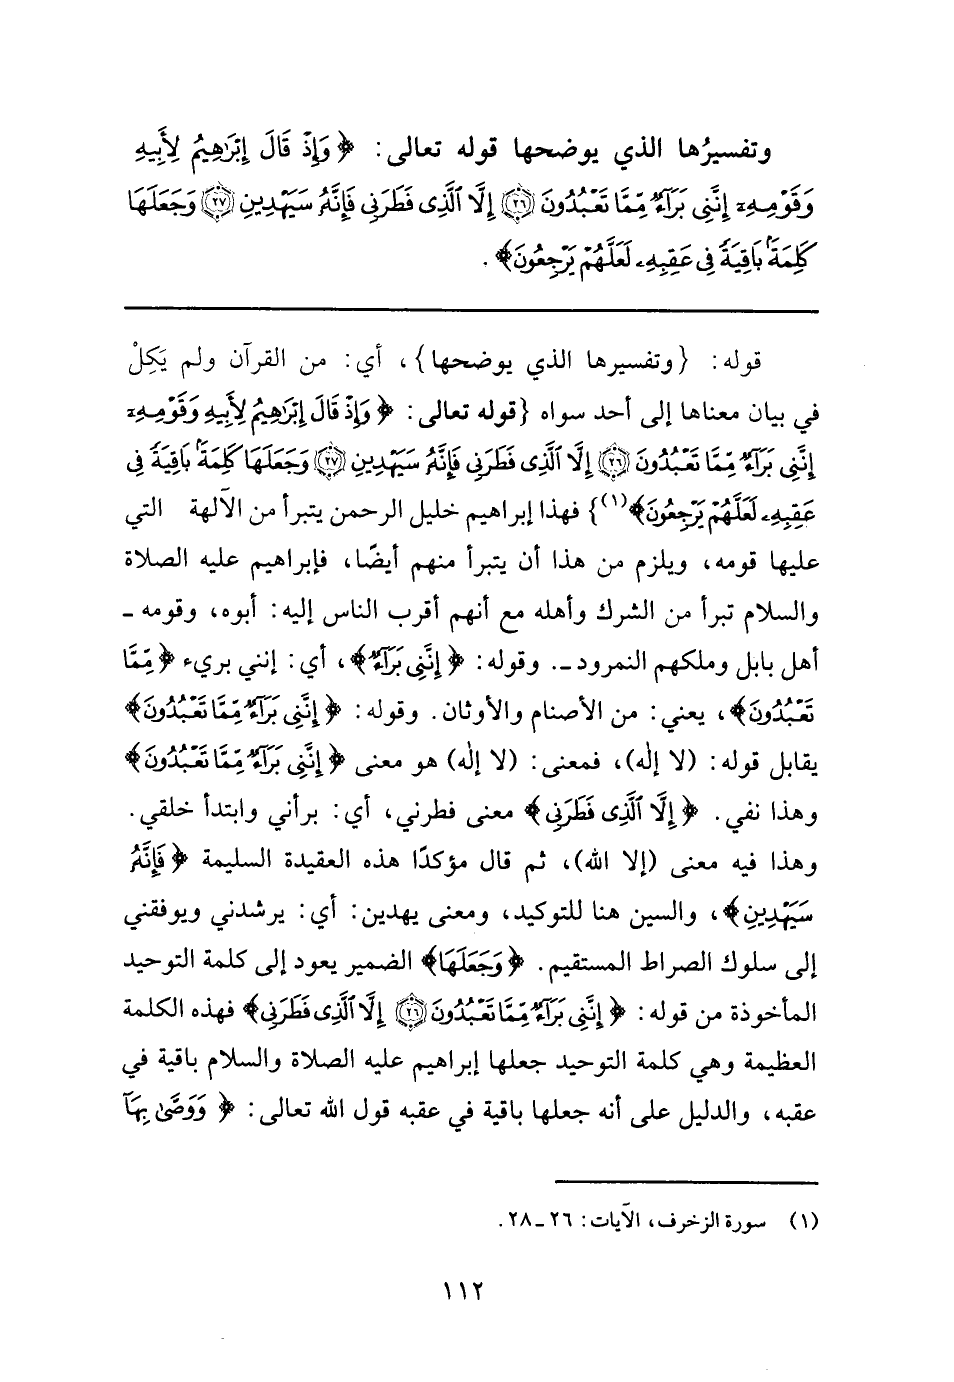 وتفسيرُها الذي يوضحها قوله تعالى: ﴿ وَإِذْ قَالَ إِبْرَاهِيمُ لِأَبِيهِ
وَقَوْمِهِۦٓ إِنَّنِى بَرَآءٌ مِّمَّا تَعْبُدُونَ ۝٢٦ إِلَّا ٱلَّذِى فَطَرَنِى فَإِنَّهُۥ سَيَهْدِينِ ۝٢٧ وَجَعَلَهَا
كَلِمَةًۢ بَاقِيَةً فِى عَقِبِهِۦ لَعَلَّهُمْ يَرْجِعُونَ﴾ .
قوله: {وتفسيرها الذي يوضحها}، أي: من القرآن ولم يَكِلْ
في بيان معناها إلى أحد سواه {قوله تعالى: ﴿ وَإِذْ قَالَ إِبْرَاهِيمُ لِأَبِيهِ وَقَوْمِهِۦٓ
إِنَّنِى بَرَآءٌ مِّمَّا تَعْبُدُونَ ۝٢٦ إِلَّا ٱلَّذِى فَطَرَنِى فَإِنَّهُۥ سَيَهْدِينِ ۝٢٧ وَجَعَلَهَا كَلِمَةًۢ بَاقِيَةً فِى
عَقِبِهِۦ لَعَلَّهُمْ يَرْجِعُونَ﴾(١)} فهذا إبراهيم خليل الرحمن يتبرأ من الآلهة التي
عليها قومه، ويلزم من هذا أن يتبرأ منهم أيضًا، فإبراهيم عليه الصلاة
والسلام تبرأ من الشرك وأهله مع أنهم أقرب الناس إليه: أبوه، وقومه ـ
أهل بابل وملكهم النمرود ـ. وقوله: ﴿ إِنَّنِى بَرَآءٌ﴾، أي: إنني بريء ﴿مِّمَّا
تَعْبُدُونَ﴾، يعني: من الأصنام والأوثان. وقوله: ﴿ إِنَّنِى بَرَآءٌ مِّمَّا تَعْبُدُونَ﴾
يقابل قوله: (لا إله)، فمعنى: (لا إله) هو معنى ﴿ إِنَّنِى بَرَآءٌ مِّمَّا تَعْبُدُونَ﴾
وهذا نفي. ﴿ إِلَّا ٱلَّذِى فَطَرَنِى﴾ معنى فطرني، أي: برأني وابتدأ خلقي.
وهذا فيه معنى (إلا الله)، ثم قال مؤكدًا هذه العقيدة السليمة ﴿ فَإِنَّهُۥ
سَيَهْدِينِ﴾، والسين هنا للتوكيد، ومعنى يهدين: أي: يرشدني ويوفقني
إلى سلوك الصراط المستقيم. ﴿وَجَعَلَهَا﴾ الضمير يعود إلى كلمة التوحيد
المأخوذة من قوله: ﴿ إِنَّنِى بَرَآءٌ مِّمَّا تَعْبُدُونَ ۝٢٦ إِلَّا ٱلَّذِى فَطَرَنِى﴾ فهذه الكلمة
العظيمة وهي كلمة التوحيد جعلها إبراهيم عليه الصلاة والسلام باقية في
عقبه، والدليل على أنه جعلها باقية في عقبه قول الله تعالى: ﴿ وَوَصَّىٰ بِهَآ
(١) سورة الزخرف، الآيات: ٢٦ ـ ٢٨.
١١٢